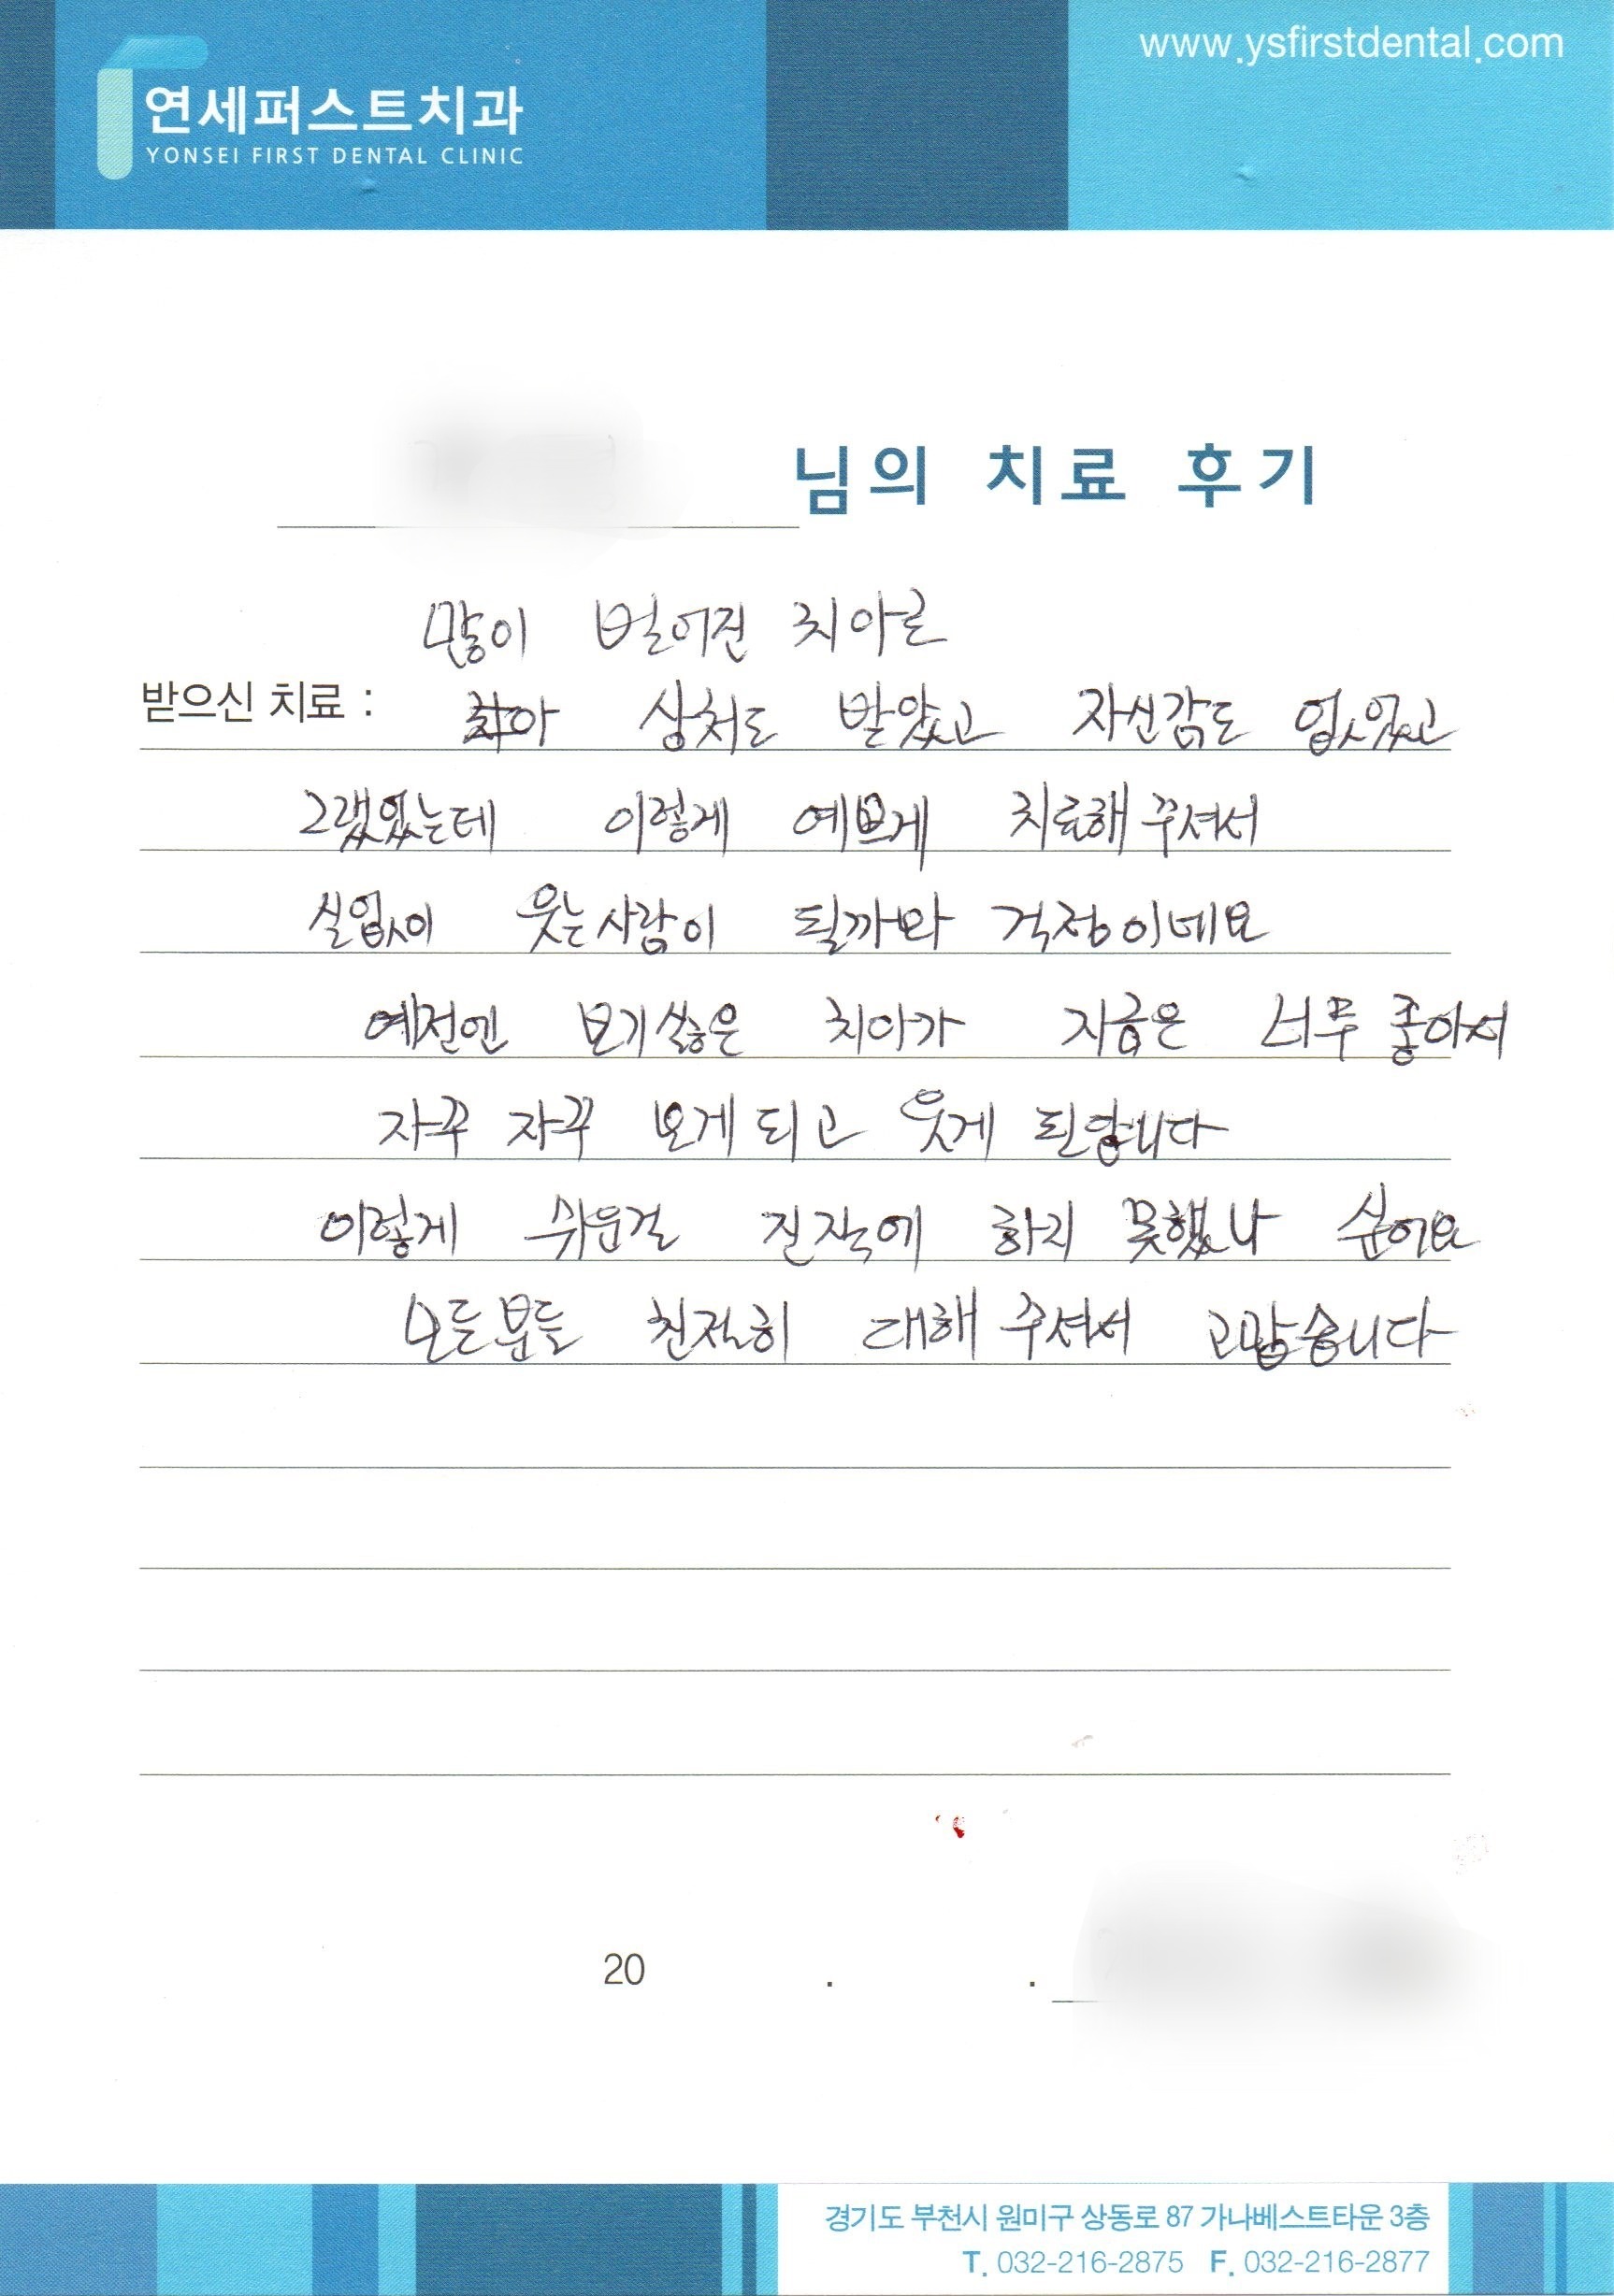 www.ysfirstdental.com
연세퍼스트치과
YONSEI FIRST DENTAL CLINIC
님의 치료 후기
많이 벌어진 치아로
받으신 치료 : 상처도 받았고 자신감도 없었고
그랬었는데 이렇게 예쁘게 치료해 주셔서
실없이 웃는사람이 될까봐 걱정이네요
예전엔 보기싫은 치아가 지금은 너무 좋아서
자꾸 자꾸 보게되고 웃게 된답니다
이렇게 쉬운걸 진작에 하지 못했나 싶어요
모든분들 친절히 대해 주셔서 고맙습니다
20 . .
경기도 부천시 원미구 상동로 87 가나베스트타운 3층
T. 032-216-2875 F. 032-216-2877